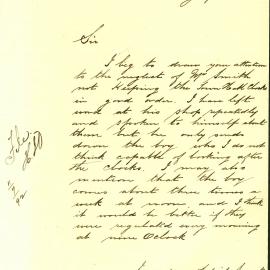 Sir
I beg to draw your attention
to the neglect of Mr Smith
not Keeping the Town Hall Clocks
in good order. I have left
work at his shop repeatedly
and spoken to himself about
them but he only sends
down the boy who I do not
think capable of looking after
the clocks. I may also
mention that the boy
comes about three times a
week at noon, and I think
it would be better if they
were regulated every morning
at nine O'clock
File